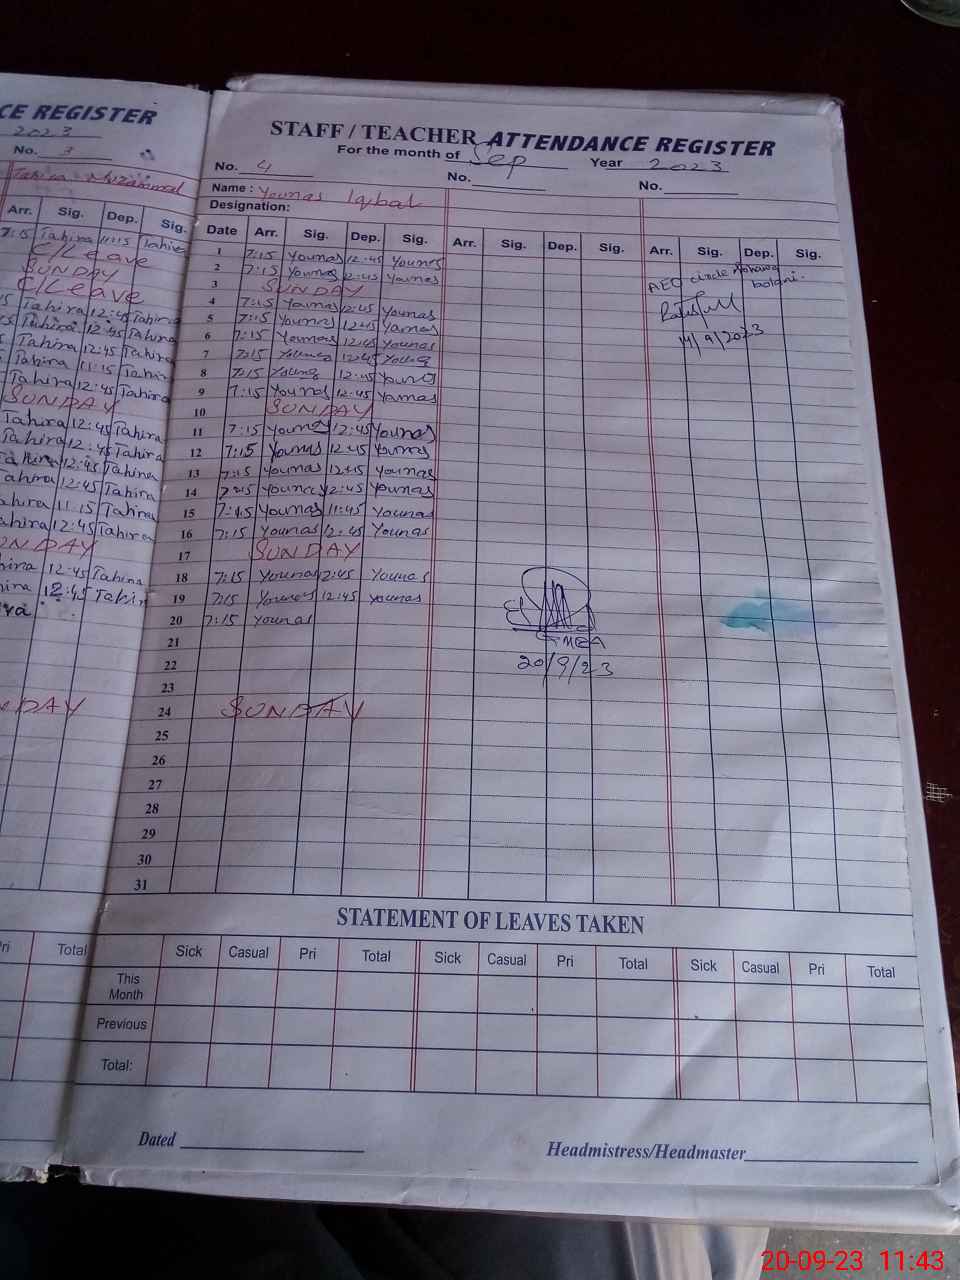 CE REGISTER
2023
No. 3
Tahira Muzammal
Arr. Sig. Dep. Sig.
7:15 Tahira 11:15 Tahira
C/Leave
SUNDAY
C/Leave
Tahira 12:45 Tahira
Tahira 12:45 Tahira
Tahira 12:45 Tahira
Tahira 11:15 Tahira
Tahira 12:45 Tahira
SUNDAY
Tahira 12:45 Tahira
Tahira 12:45 Tahira
Tahira 12:45 Tahira
Tahira 12:45 Tahira
ahira 11:15 Tahira
ahira 12:45 Tahira
UNDAY
hira 12:45 Tahira
ira 12:45 Tahir
NDAY
Pri Total
STAFF / TEACHER ATTENDANCE REGISTER
For the month of Sep Year 2023
No. 4 No. No.
Name : Younas Iqbal
Designation:
Date Arr. Sig. Dep. Sig. Arr. Sig. Dep. Sig. Arr. Sig. Dep. Sig.
1 7:15 Younas 12:45 Younas
2 7:15 Younas 12:45 Younas
3 SUNDAY
4 7:15 Younas 12:45 Younas
5 7:15 Younas 12:45 Younas
6 7:15 Younas 12:45 Younas
7 7:15 Younas 12:45 Younas
8 7:15 Younas 12:45 Younas
9 7:15 Younas 12:45 Younas
10 SUNDAY
11 7:15 Younas 12:45 Younas
12 7:15 Younas 12:45 Younas
13 7:15 Younas 12:45 Younas
14 7:15 Younas 12:45 Younas
15 7:15 Younas 11:45 Younas
16 7:15 Younas 12:45 Younas
17 SUNDAY
18 7:15 Younas 12:45 Younas
19 7:15 Younas 12:45 Younas
20 7:15 Younas
21
22
23
24 SUNDAY
25
26
27
28
29
30
31
AEO circle
14/9/2023
MEA
20/9/23
STATEMENT OF LEAVES TAKEN
Sick Casual Pri Total Sick Casual Pri Total Sick Casual Pri Total
This Month
Previous
Total:
Dated
Headmistress/Headmaster
20-09-23 11:43